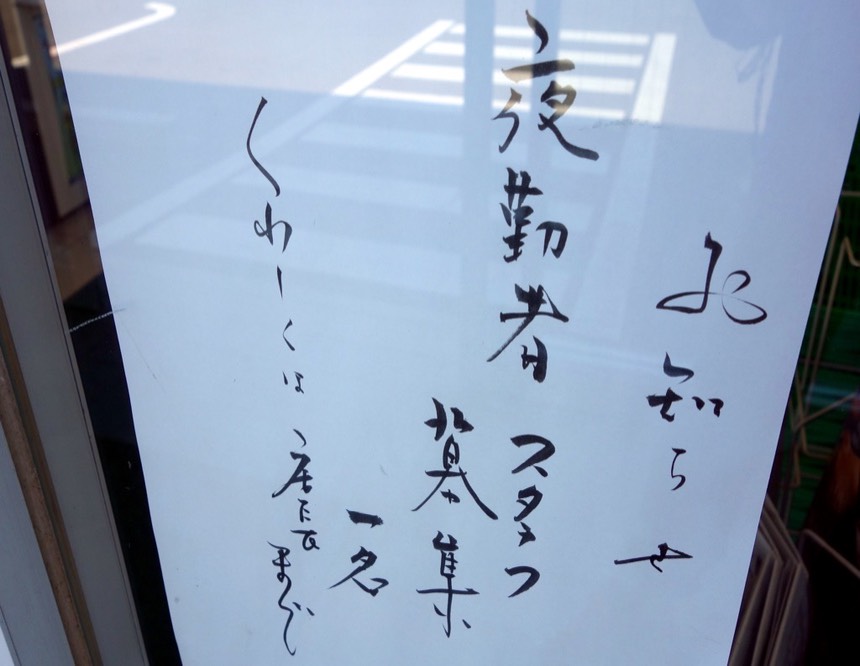 お知らせ
夜勤者スタッフ
募集
一名
くわしくは店長まで